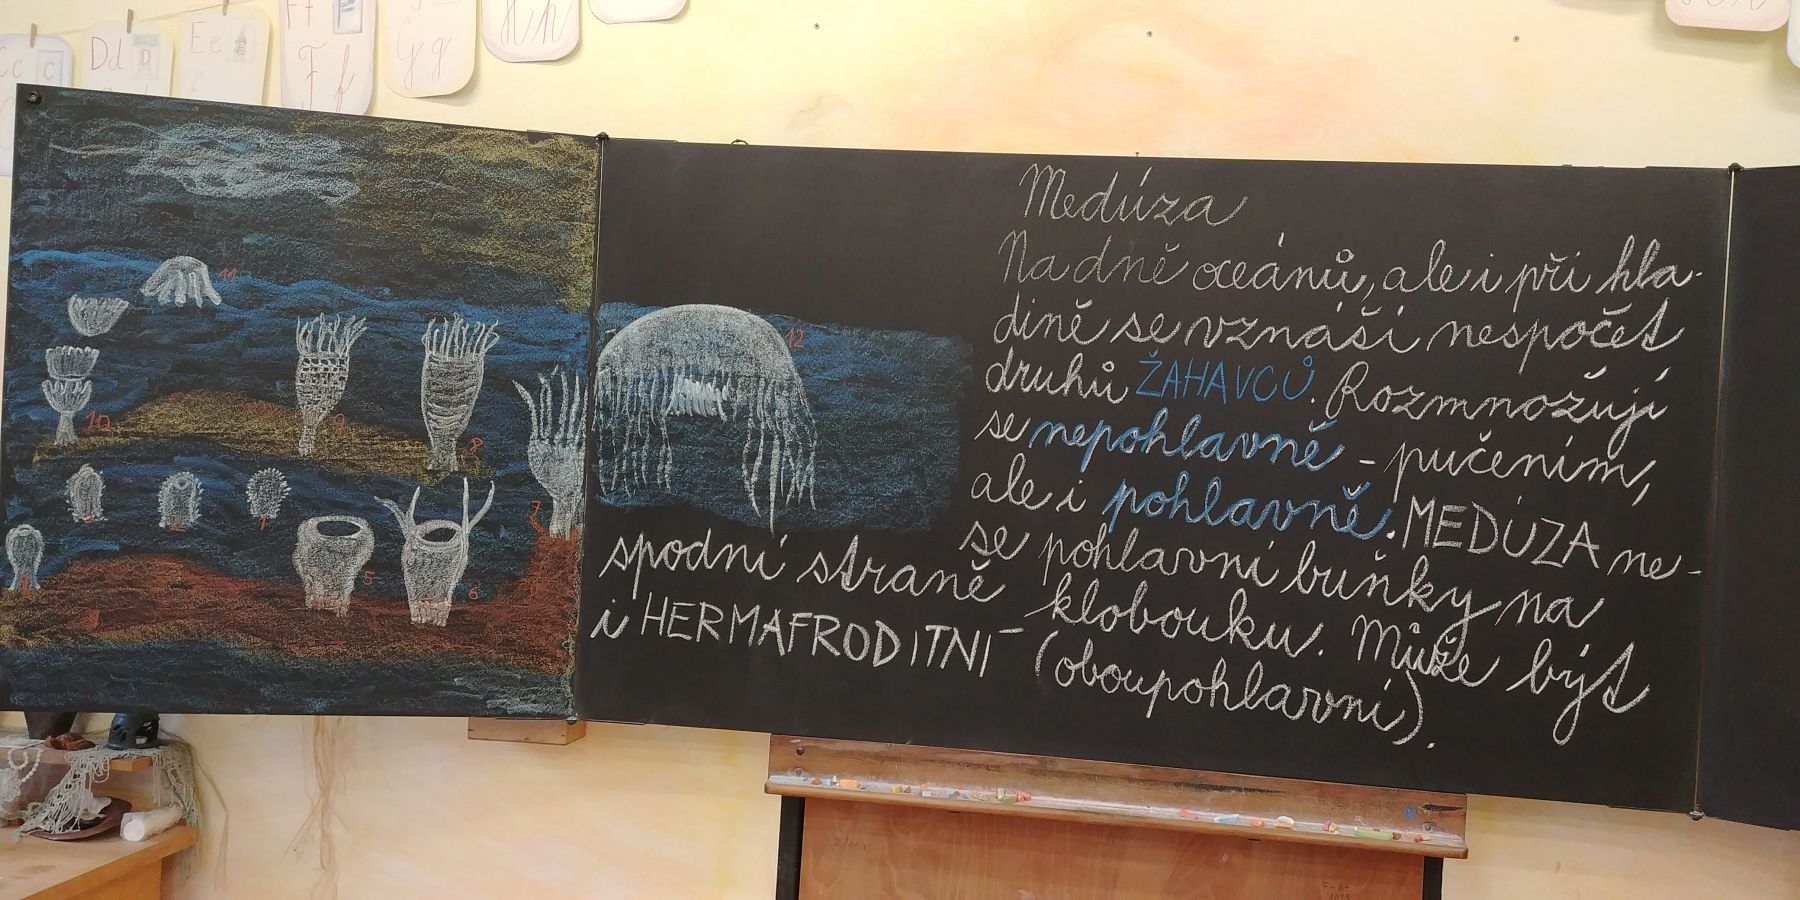 Cc
C
Dd
D
Ee
Ff
F f
G g
H h
11
12
10
9
8
7
1
5
6
Medúza
Na dně oceánů, ale i při hla-
dině se vznáší nespočet
druhů ŽAHAVCŮ. Rozmnožují
se nepohlavně - pučením,
ale i pohlavně. MEDÚZA ne-
se pohlavní buňky na
spodní straně klobouku. Může být
i HERMAFRODITNÍ (oboupohlavní).